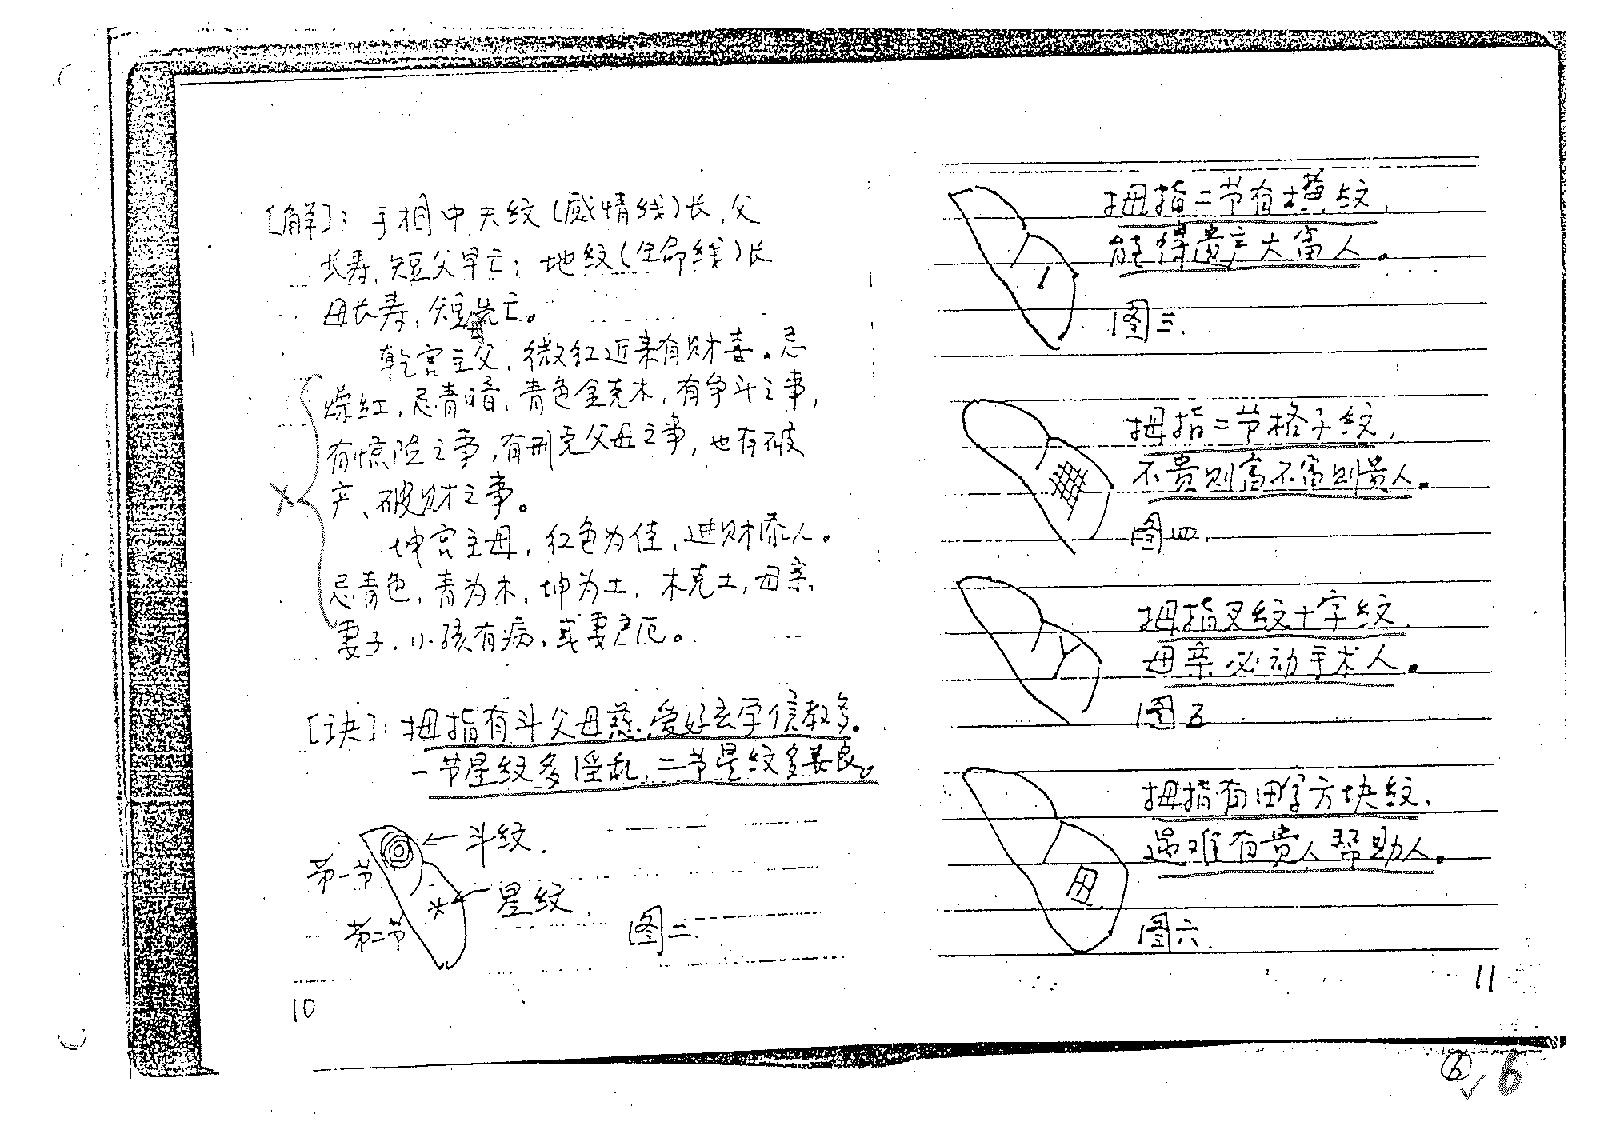 [解]：手相中天纹(感情线)长，父
长寿，短父早亡；地纹(生命线)长
母长寿，短先亡。
乾宫主父，微红近来有财喜。忌
红，忌青暗，青色金克木，有争斗之事，
有惊险之事，有刑克父母之事，也有破
产、破财之事。
坤宫主母，红色为佳，进财添人。
忌青色，青为木，坤为土，木克土，母亲，
妻子，小孩有病，或妻产厄。
[诀]：拇指有斗父母慈，爱好玄学信教多。
一节星纹多淫乱，二节星纹多妻良。
斗纹
第一节
星纹
第二节
图二
10
拇指二节有横纹，
能得遗产大富人。
图三
拇指二节格子纹，
不贵则富不富则贵人。
图四
拇指叉纹十字纹，
母亲必动手术人。
图五
拇指有田字方块纹，
遇难有贵人帮助人。
图六
11
6
6